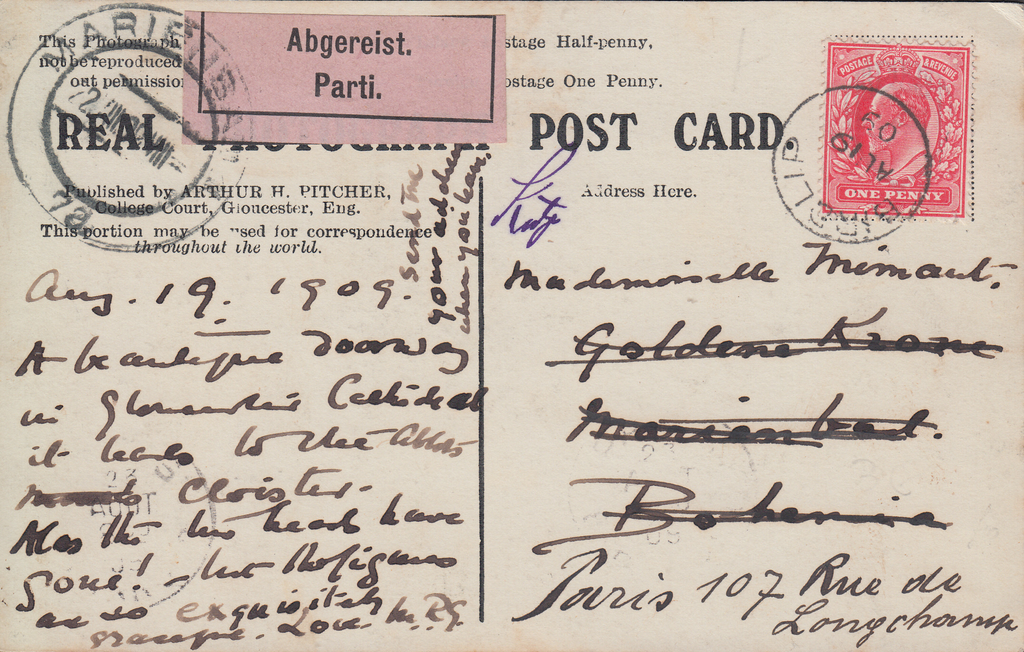 This Photograph
not be reproduced
out permission
Abgereist.
Parti.
stage Half-penny,
ostage One Penny.
REAL PHOTOGRAPH POST CARD.
Published by ARTHUR H. PITCHER,
College Court, Gloucester, Eng.
This portion may be used for correspondence
throughout the world.
Address Here.
POSTAGE & REVENUE
ONE PENNY
BIRDLIP
AU 19
09
send me
your address
when you hear.
Aug. 19. 1909.
A beautiful Doorway
in Gloucester Cathedral
it leads to the Abbots
Cloister-
Alas the heads have
gone! - but the figures
are so exquisitely
graceful. Love. M.R.G.
Mademoiselle Mimaut.
Goldene Krone
Marienbad.
Bohemia
Paris 107 Rue de
Longchamp
23
AOUT
09